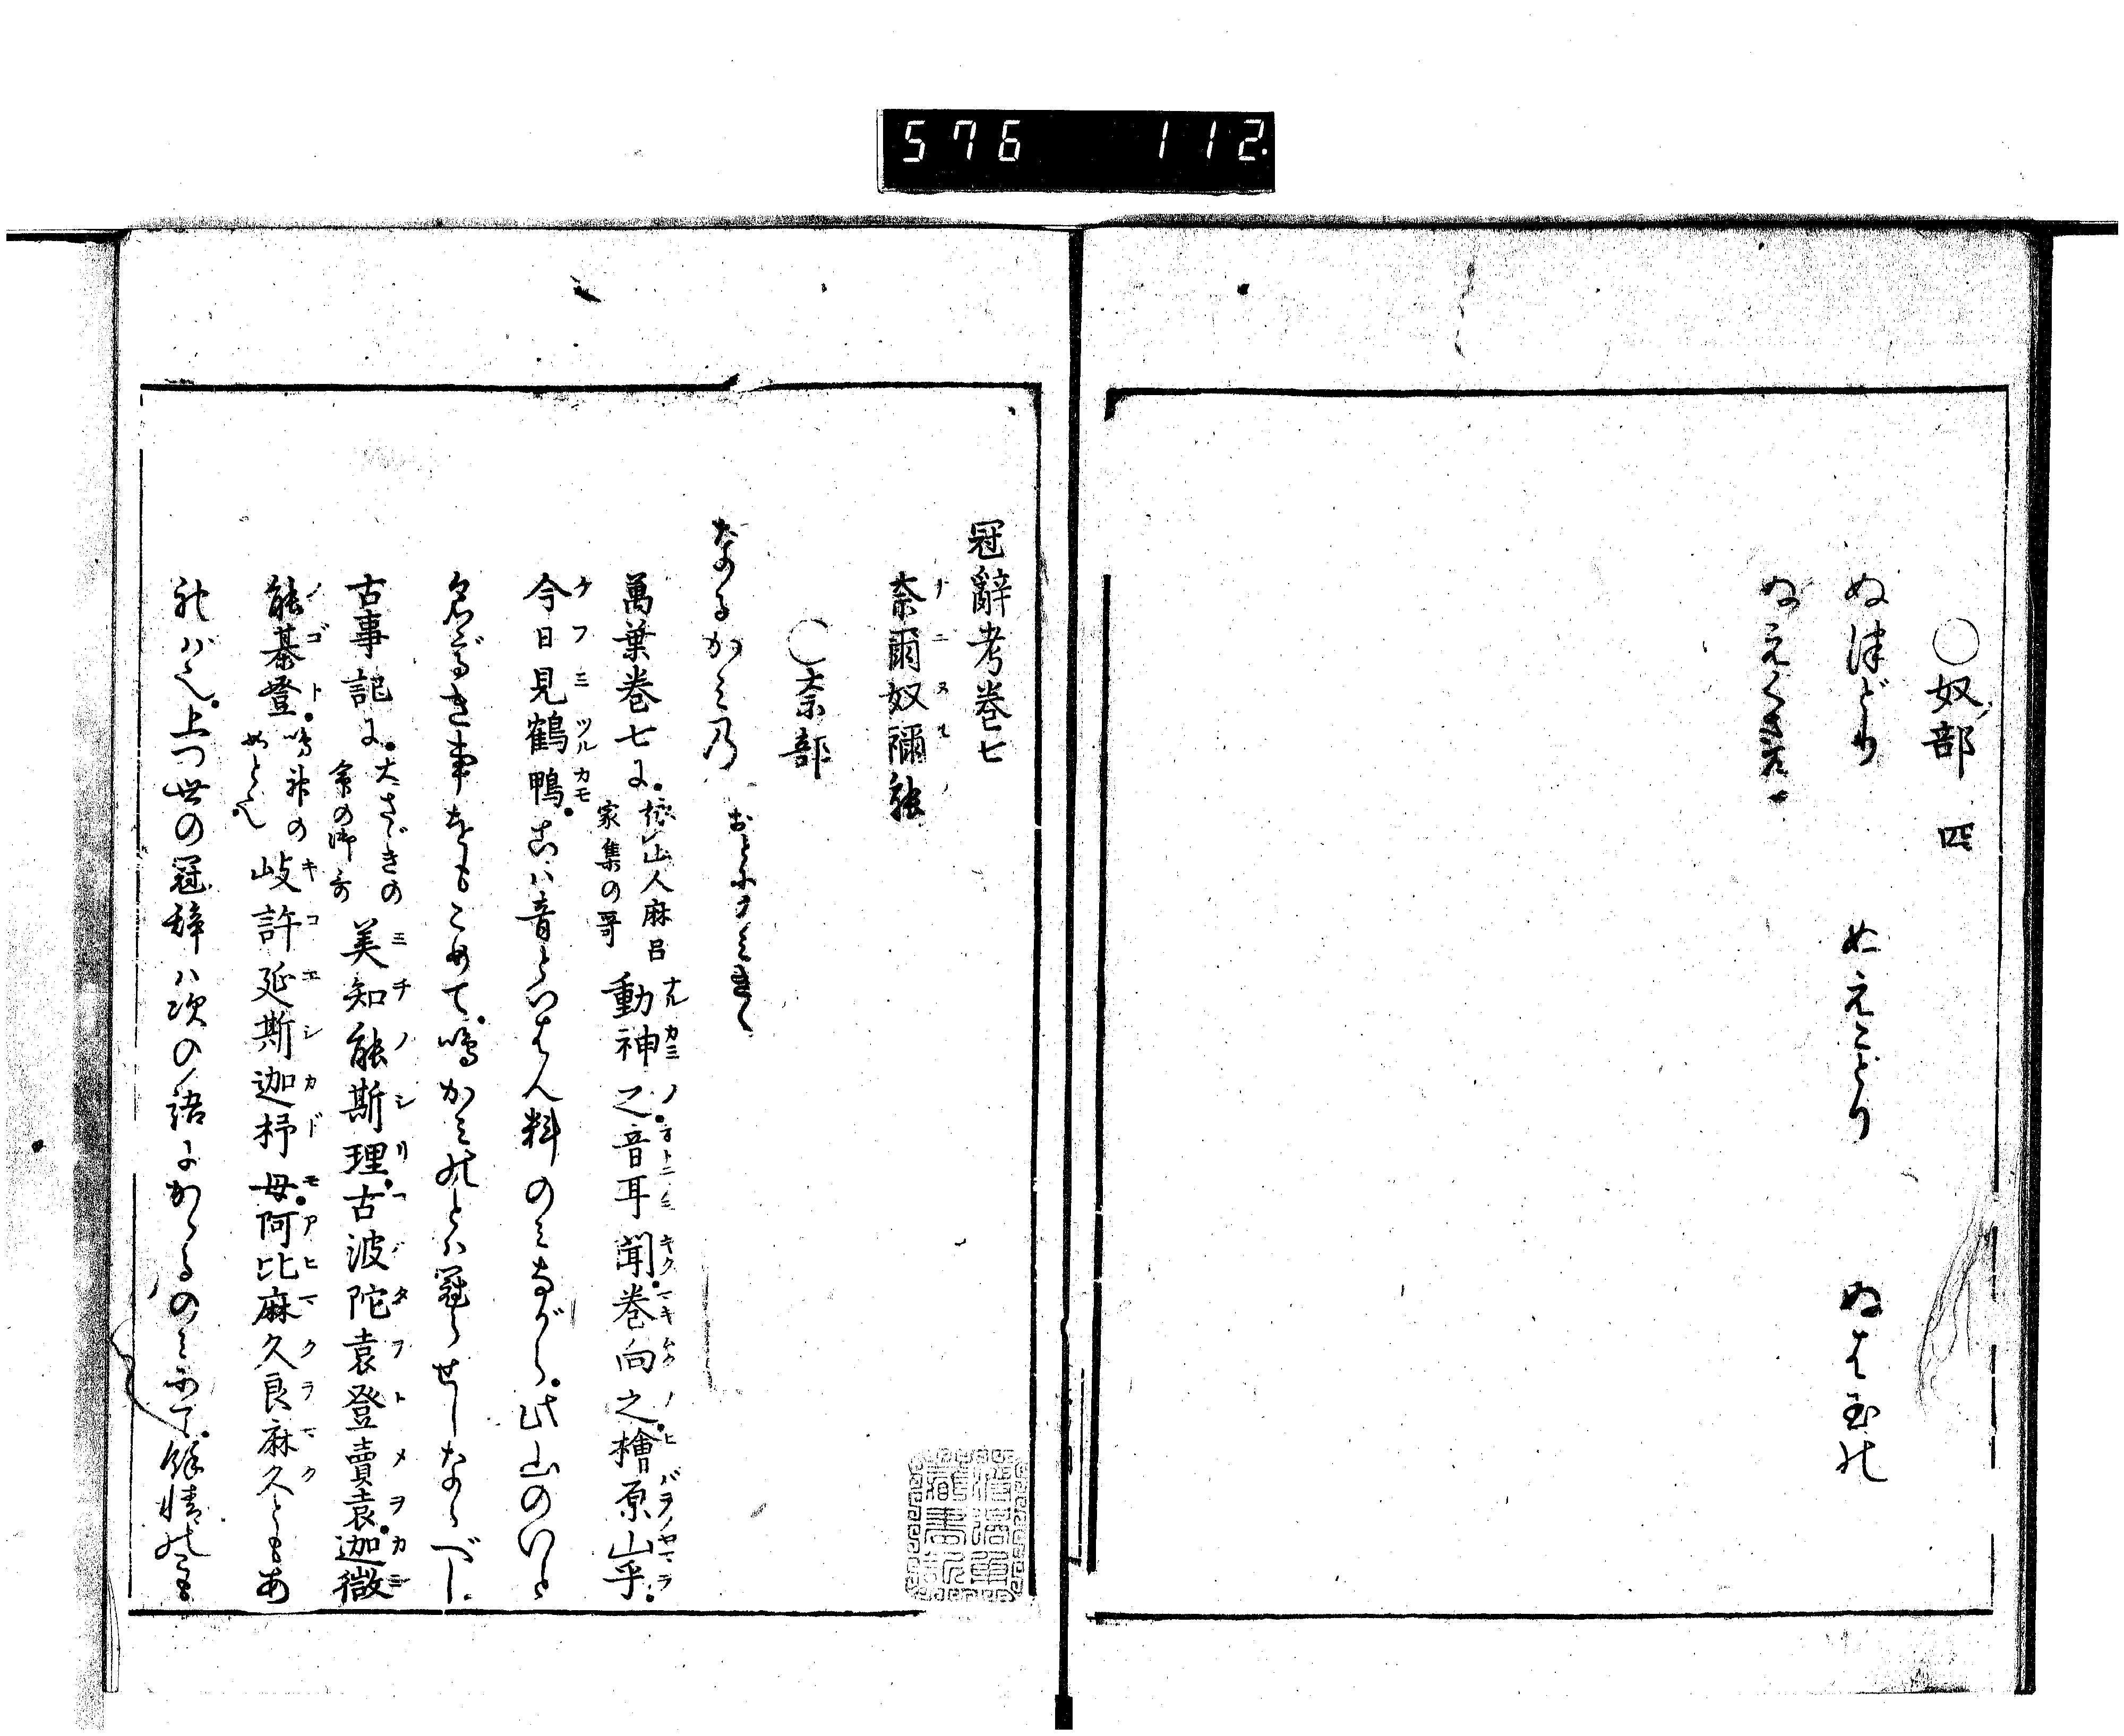 576 112.
○奴部 四
ぬ津どり ぬえことり ぬば玉の
ぬえくさの
冠辭考巻七
奈爾奴禰能
○奈部
なるかみ乃 おとのみきく
萬葉巻七に。
柿本人麻呂
家集の哥
動神之。音耳聞。巻向之。檜原山乎。
今日見鶴鴨。こは音といはん料のみながら。此山のいと
名だゝる
き事をもこめて。鳴かみのとは冠らせしなるべし
古事記に。
大さゞきの
命の御哥
美知能斯理。古波陀袁登賣袁。迦微
能碁登。
鳴神の
めとく也
岐許延斯迦杼母。阿比麻久良麻久ともあ
れば也。上つ世の冠辞は次の語にかゝるのみならず。餘情の